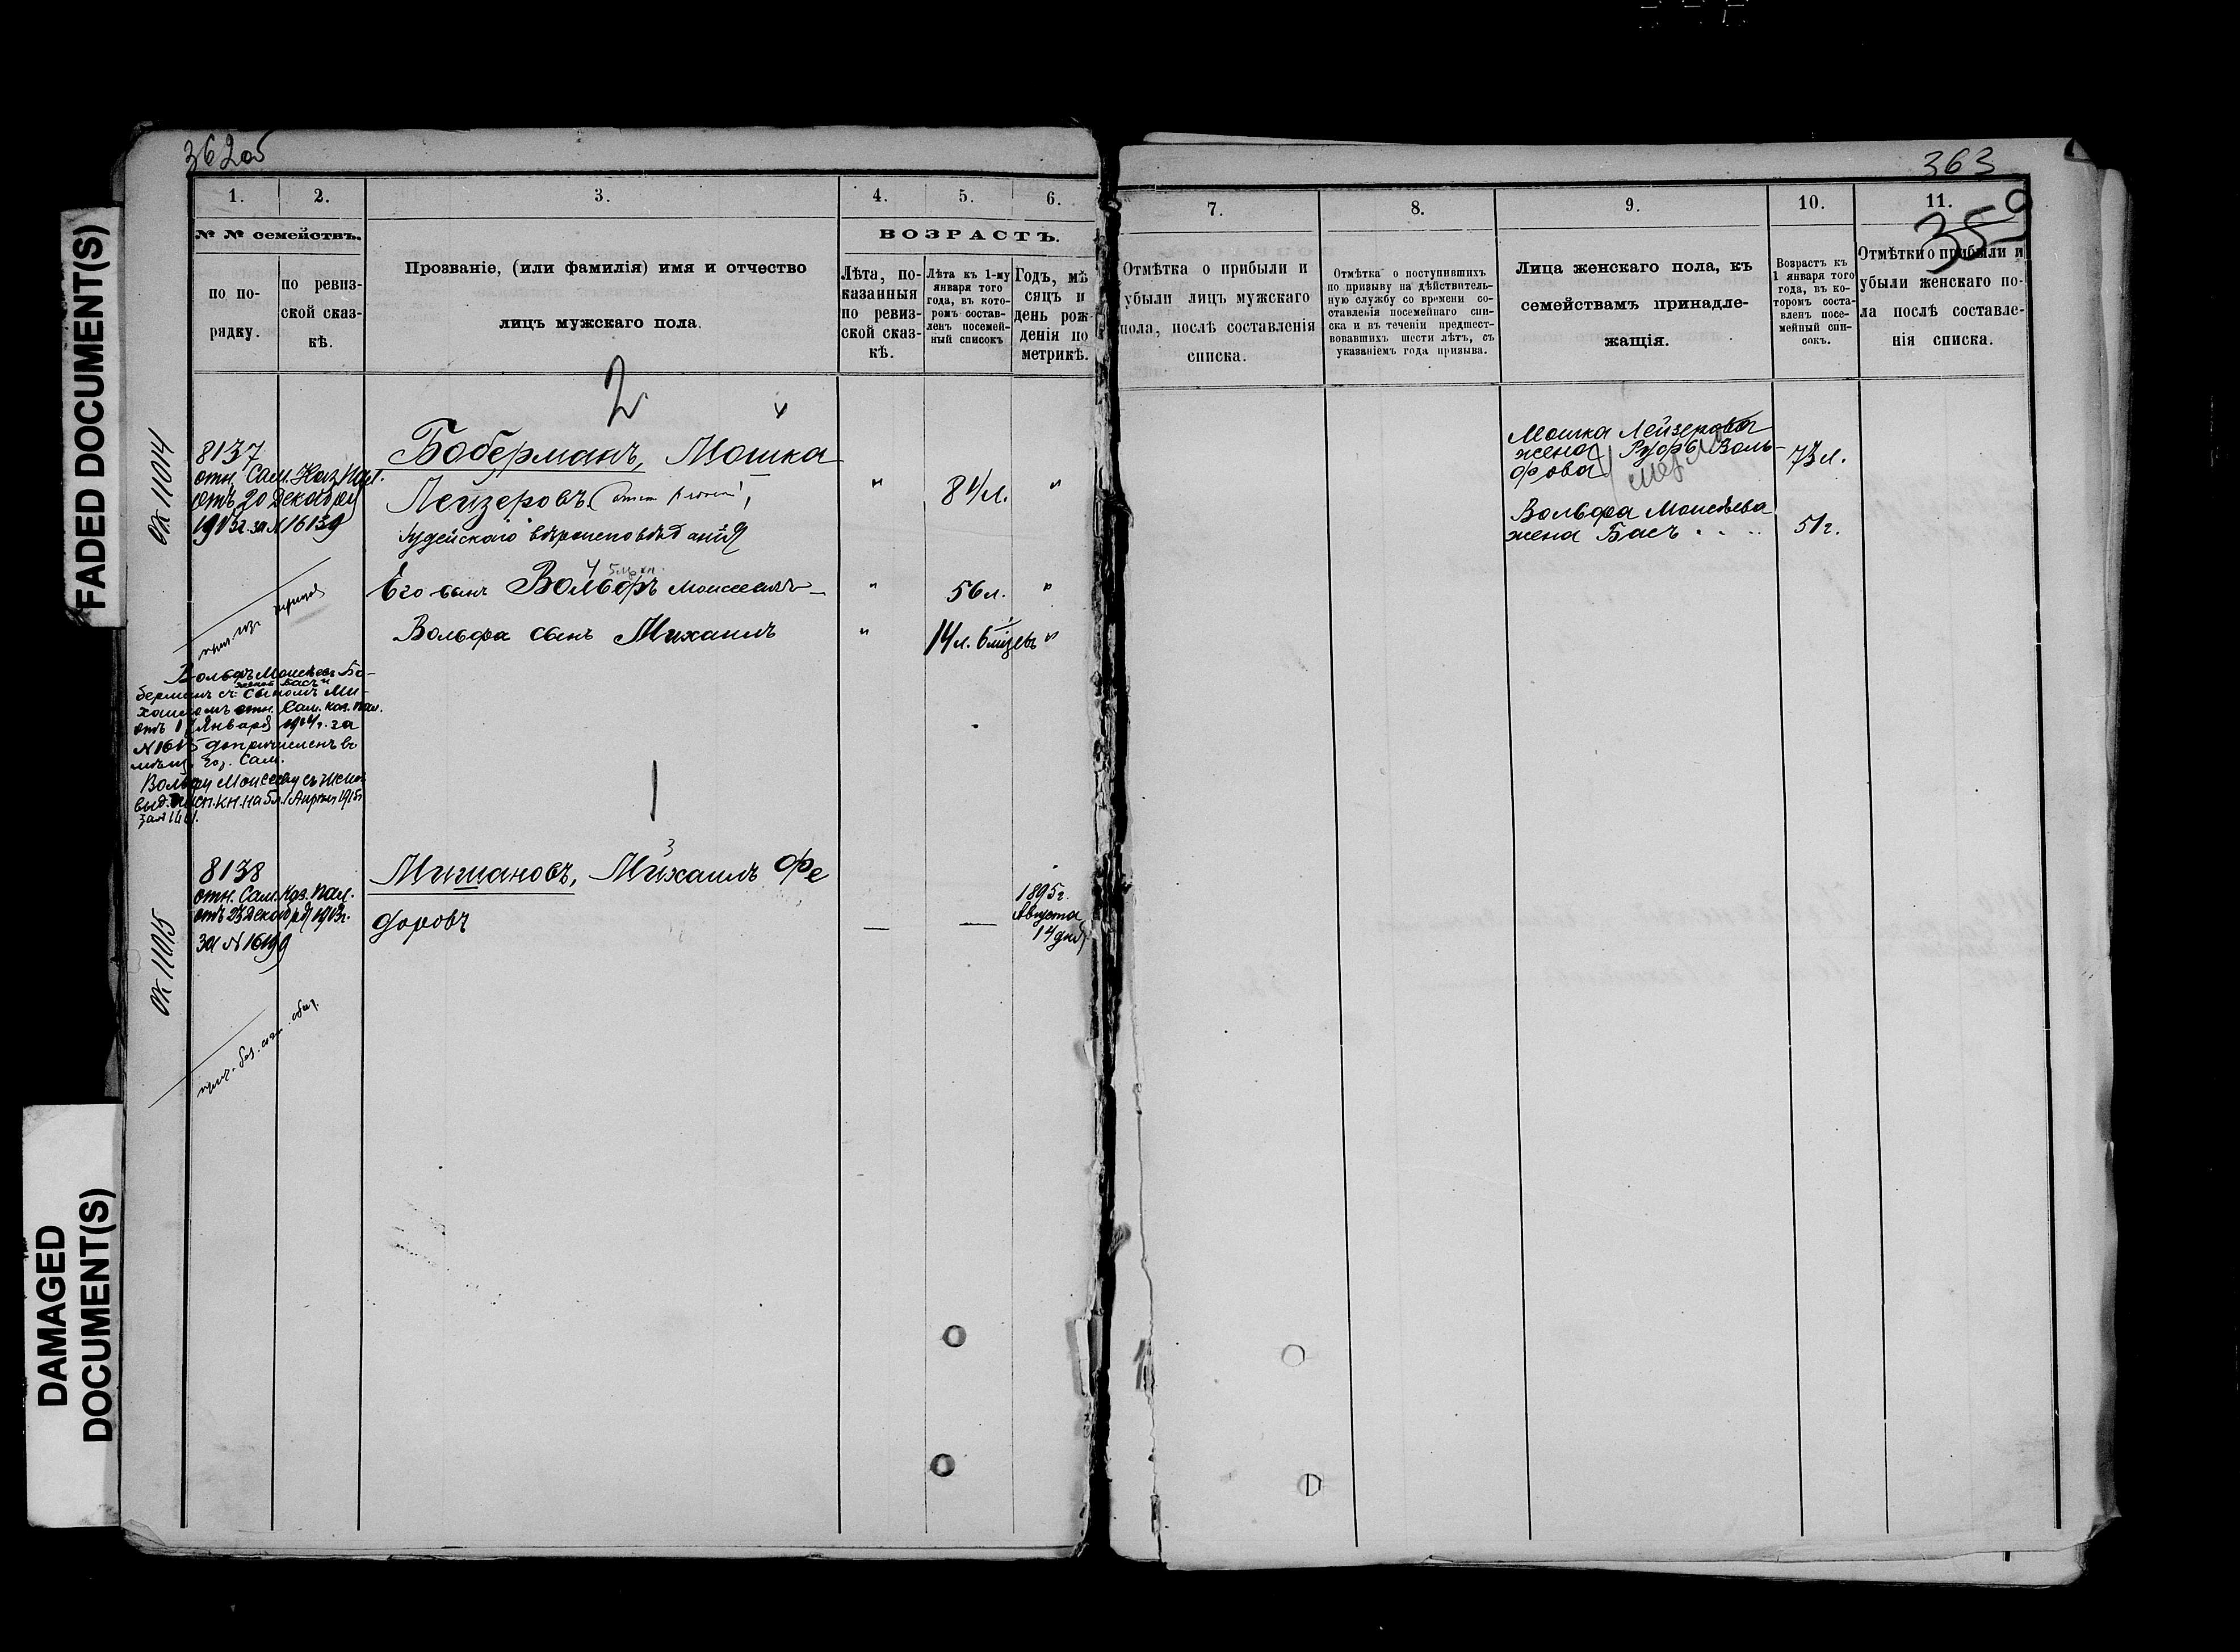 FADED DOCUMENT(S)
DAMAGED
DOCUMENT(S)
362об
1.
2.
3.
4.
5.
6.
№ № семействъ.
по по-
рядку.
по ревиз-
ской сказ-
кѣ.
Прозваніе, (или фамилія) имя и отчество
лицъ мужскаго пола.
ВОЗРАСТЪ.
Лѣта, по-
казанныя
по ревиз-
ской сказ-
кѣ.
Лѣта къ 1-му
января того
года, въ кото-
ромъ состав-
ленъ посемей-
ный списокъ
Годъ, мѣ
сяцъ и
день рож-
денія по
метрикѣ.
2
ок 11014
8137
отн. Сам. Каз. Пал.
отъ 20 Декабря
1913г. за № 16159
Боберманъ, Мошка
Лейзеровъ
Іудейскаго вѣроисповѣданія
" 84л. "
Его сынъ Вольфъ Моисеевъ
" 56л. "
Вольфа сынъ Михаилъ
" 14л. 6мѣсяцевъ "
Вольфъ Моисеевъ Бо-
берманъ съ женой Бась и сыномъ Ми-
хаиломъ отн. Сам. каз. пал.
отъ Января 1914г. за
№ 1615 допричисленъ въ
мѣщ. гор. Сам.
Вольфу Моисееву съ женой
выд. кн. на 5л. 1 Апрѣля 1915г
1
ок 11015
8138
отн. Сам. Каз. Пал.
отъ 23 Декабря 1913г.
за № 16199
Мишановъ, Михаилъ Фе
3
доровъ
1895г.
Августа
14 дня
363
359
7.
8.
9.
10.
11.
Отмѣтка о прибыли и
убыли лицъ мужскаго
пола, послѣ составленія
списка.
Отмѣтка о поступившихъ
по призыву на дѣйствитель-
ную службу со времени со-
ставленія посемейнаго спи-
ска и въ теченіи предшест-
вовавшихъ шести лѣтъ, съ
указаніемъ года призыва.
Лица женскаго пола, къ
семействамъ принадле-
жащія.
Возрастъ къ
1 января того
года, въ ко-
торомъ соста-
вленъ посе-
мейный спи-
сокъ.
Отмѣтки о прибыли и
убыли женскаго по-
ла послѣ составле-
нія списка.
Мошка Лейзерова
жена Руфь Воль-
фова
73л.
Вольфа Моисѣева
жена Бась
51г.